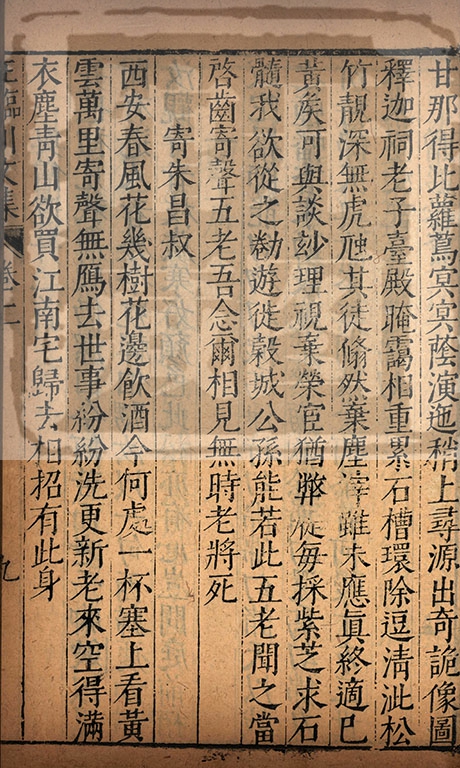 甘那得比蘿蔦冥冥蔭演迤稍上尋源出奇詭像圖
釋迦祠老子臺殿晻靄相重累石槽環除逗清泚松
竹靚深無虎兕其徒翛然棄塵滓雖未應真終適已
黃矣可與談玅理視棄榮宦猶弊屣每採紫芝求石
髓我欲從之勌遊徙穀城公孫能若此五老聞之當
啓齒寄聲五老吾念爾相見無時老將死
寄朱昌叔
西安春風花幾樹花邊飲酒今何處一杯塞上看黃
雲萬里寄聲無鴈去世事紛紛洗更新老來空得滿
衣塵青山欲買江南宅歸去相招有此身
王臨川文集 卷二 九